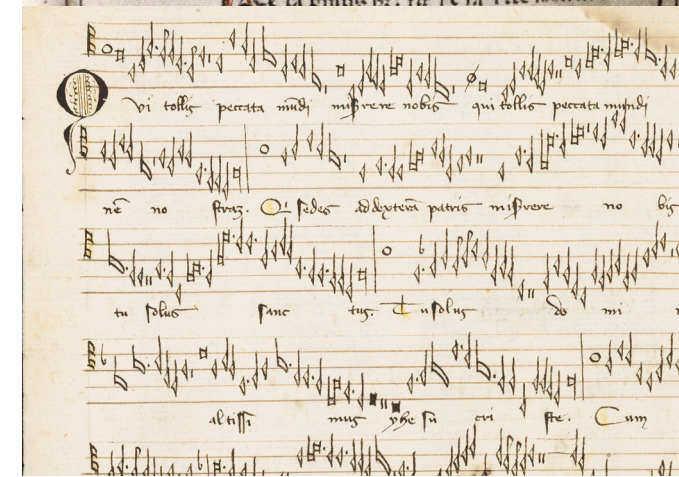 Qui tollis peccata mūdi misrere nobis qui tollis peccata mundi
nē no straz. Qi sedes ad dexterā patris misrere no bis
tu solus sanc tus. Tu solus do mi
altissi mus yhesu cri ste. Cum